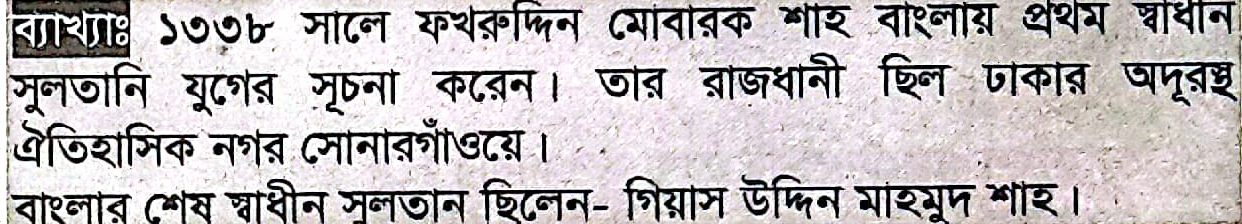 ব্যাখ্যাঃ ১৩৩৮ সালে ফখরুদ্দিন মোবারক শাহ বাংলায় প্রথম স্বাধীন
সুলতানি যুগের সূচনা করেন। তার রাজধানী ছিল ঢাকার অদূরস্থ
ঐতিহাসিক নগর সোনারগাঁওয়ে।
বাংলার শেষ স্বাধীন সুলতান ছিলেন- গিয়াস উদ্দিন মাহমুদ শাহ।